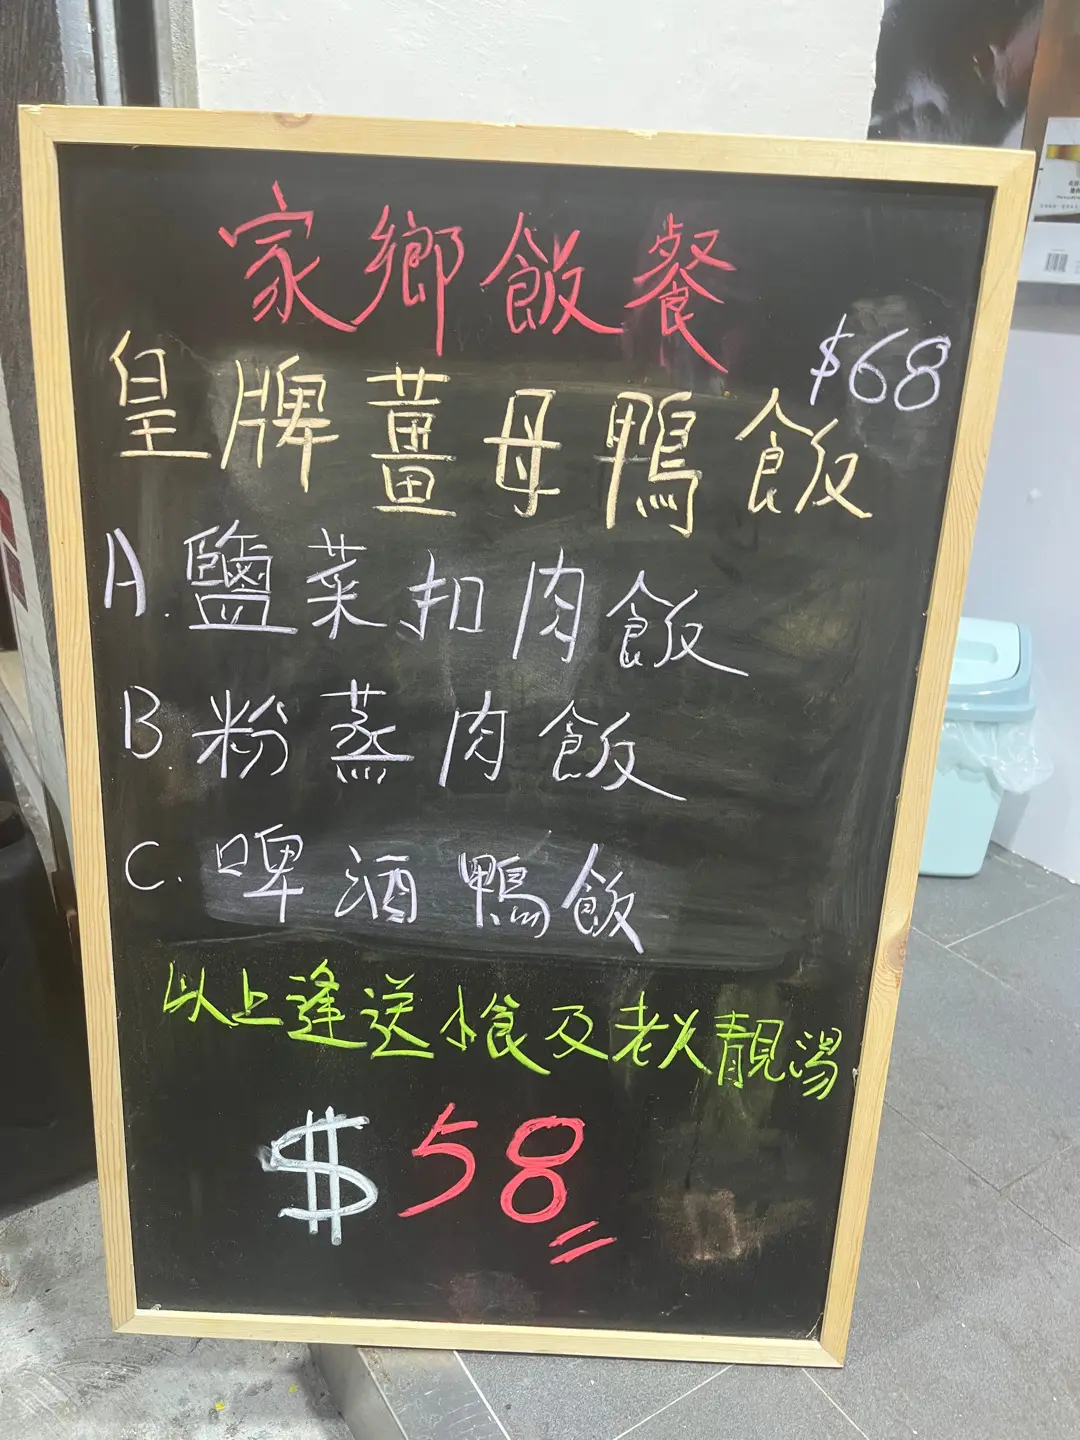 家鄉飯餐
$68
皇牌薑母鴨飯
A. 鹽菜扣肉飯
B 粉蒸肉飯
C. 啤酒鴨飯
以上逢送小食及老火靚湯
$58